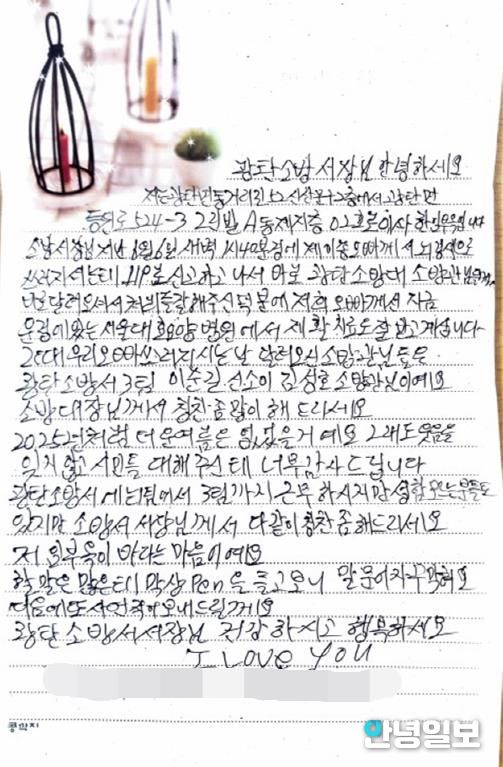 광탄소방서장님 안녕하세요
저는 광탄면
등원로 524-3 2층빌 A동 제지층 02호로 이사
소방서장님 지난 6월 6일 새벽 1시 40분경에 제 오빠께서 뇌경색으로
쓰러지셨는데 119로 신고하고 나서 바로 광탄소방대 소방관님들께서
달려오셔서 처치를 잘해주신 덕분에 저희 오빠께서 지금
운정에 있는 서울대효요양병원에서 재활치료도 잘 받고 계십니다
그런데 우리 오빠 쓰러지시는 날 달려오신 소방관님들은
광탄소방서 3팀 이순길 선소이 김성호 소방관님이예요
소방대장님께서 칭찬좀 많이 해 드리세요
2025년처럼 더운 여름은 없었을거예요 그래도 웃음을
잊지 않고 시민들 대해주신데 너무 감사드립니다
광탄소방서에 1팀에서 3팀까지 근무하시지만 성함 모르는 분들도
있지만 소방서 서장님께서 다같이 칭찬좀해드리세요
저 외부욱이 바라는 마음이예요
할 말은 많은데 막상 Pen을 들고보니 말문이
다음에 또 사연 적어 보내드릴게요
광탄소방서 서장님 건강하시고 행복하세요
I LOVE YOU
콩쥐지
안녕일보